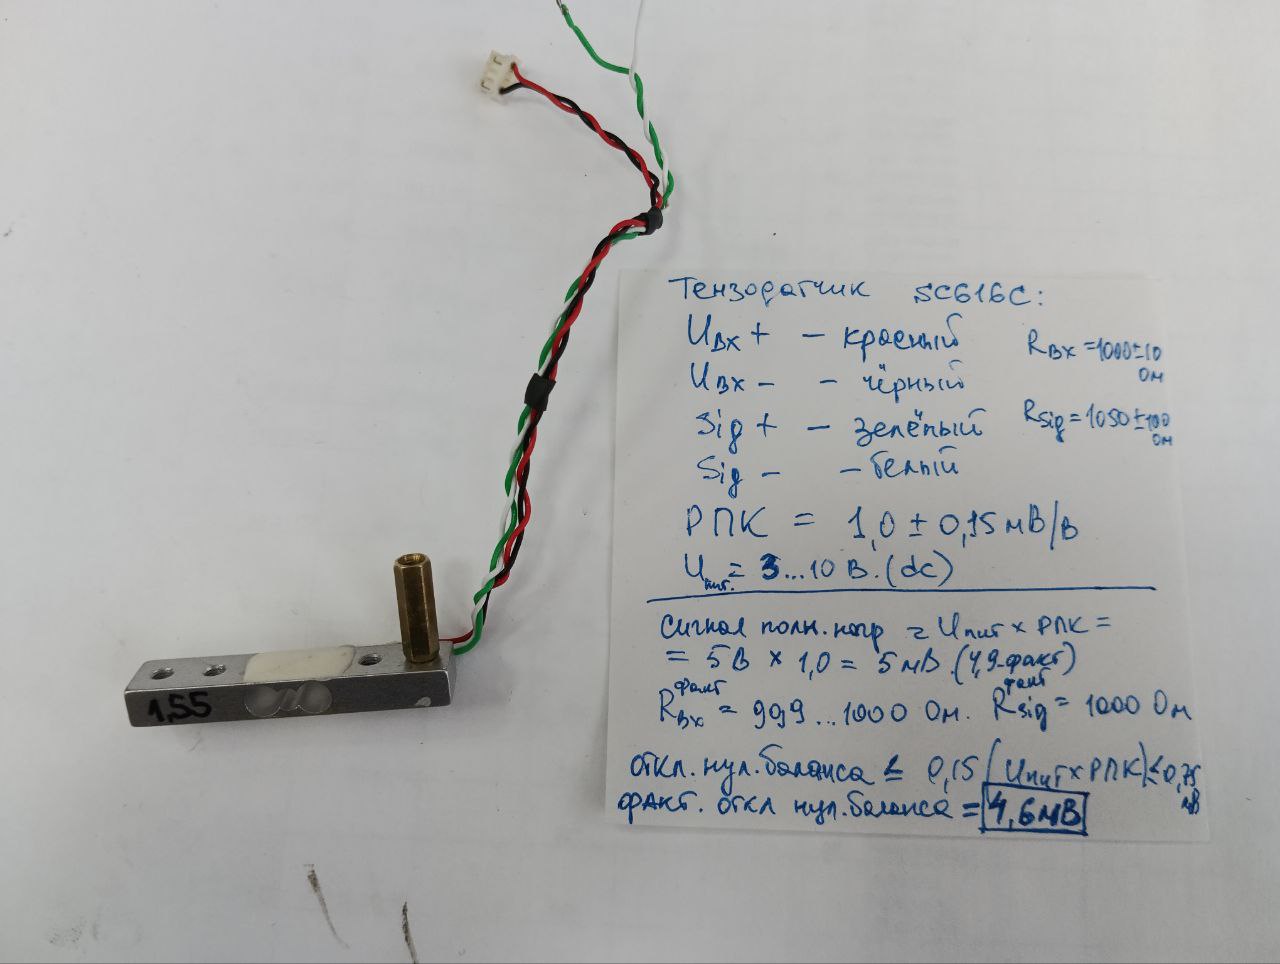 1,55
Тензодатчик SC616C:
Uвх + - красный
Rвх = 1000±10 Ом
Uвх - - чёрный
Sig + - зелёный
Rsig = 1050±100 Ом
Sig - - белый
РПК = 1,0 ± 0,15 мВ/В
Uпит. = 3...10 В. (dc)
Сигнал полн. нагр = Uпит × РПК =
= 5В × 1,0 = 5 мВ. (4,9-факт)
Rвх факт = 999...1000 Ом. Rsig факт = 1000 Ом
откл. нул. баланса ≤ 0,15 (Uпит×РПК) ≤ 0,75 мВ
факт. откл нул. баланса = 4,6мВ